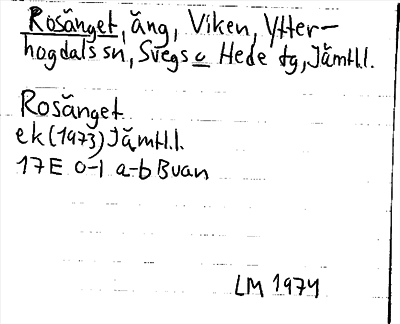 Rosänget, äng, Viken, Ytter-
hogdals sn, Svegs o Hede tg, Jämtl.l.
Rosänget
ek (1973) Jämtl.l.
17E 0-1 a-b Buan
LM 1974